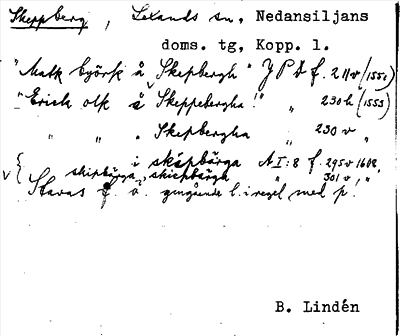 Skeppberg, Leksands sn, Nedansiljans
doms. tg, Kopp. l.
"Matk byörk å Skepbergh" J P D f. 211v (1551)
"Erich olk å Skeppebergha!" „ 230 h (1553)
„ „ . Skepbergha „ 230 v „
i skäpbärga A I:8 f. 295v 1602.
skipbärga, skiepbärgh „ 301 v, „
Stavas f. ö. gengående l. i regel med p!
B. Lindén